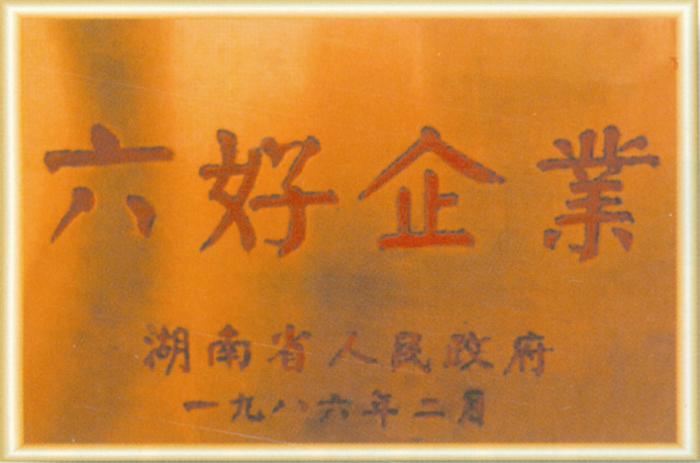 六好企業
湖南省人民政府
一九八六年二月